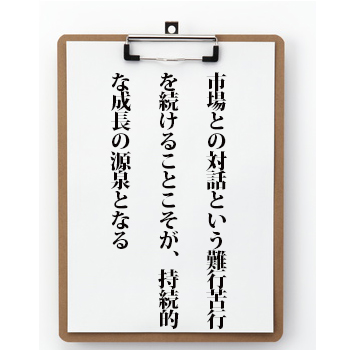 市場との対話という難行苦行
を続けることこそが、持続的
な成長の源泉となる